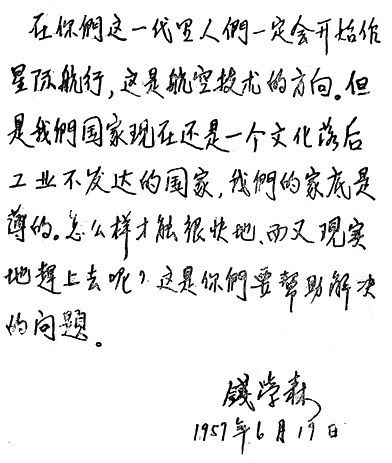 在你們这一代里人們一定会开始作
星际航行，这是航空技术的方向。但
是我們国家现在还是一个文化落后
工业不发达的国家，我們的家底是
薄的。怎么样才能很快地、而又现实
地趕上去呢？这是你們要幫助解决
的问題。
錢学森
1957年6月19日